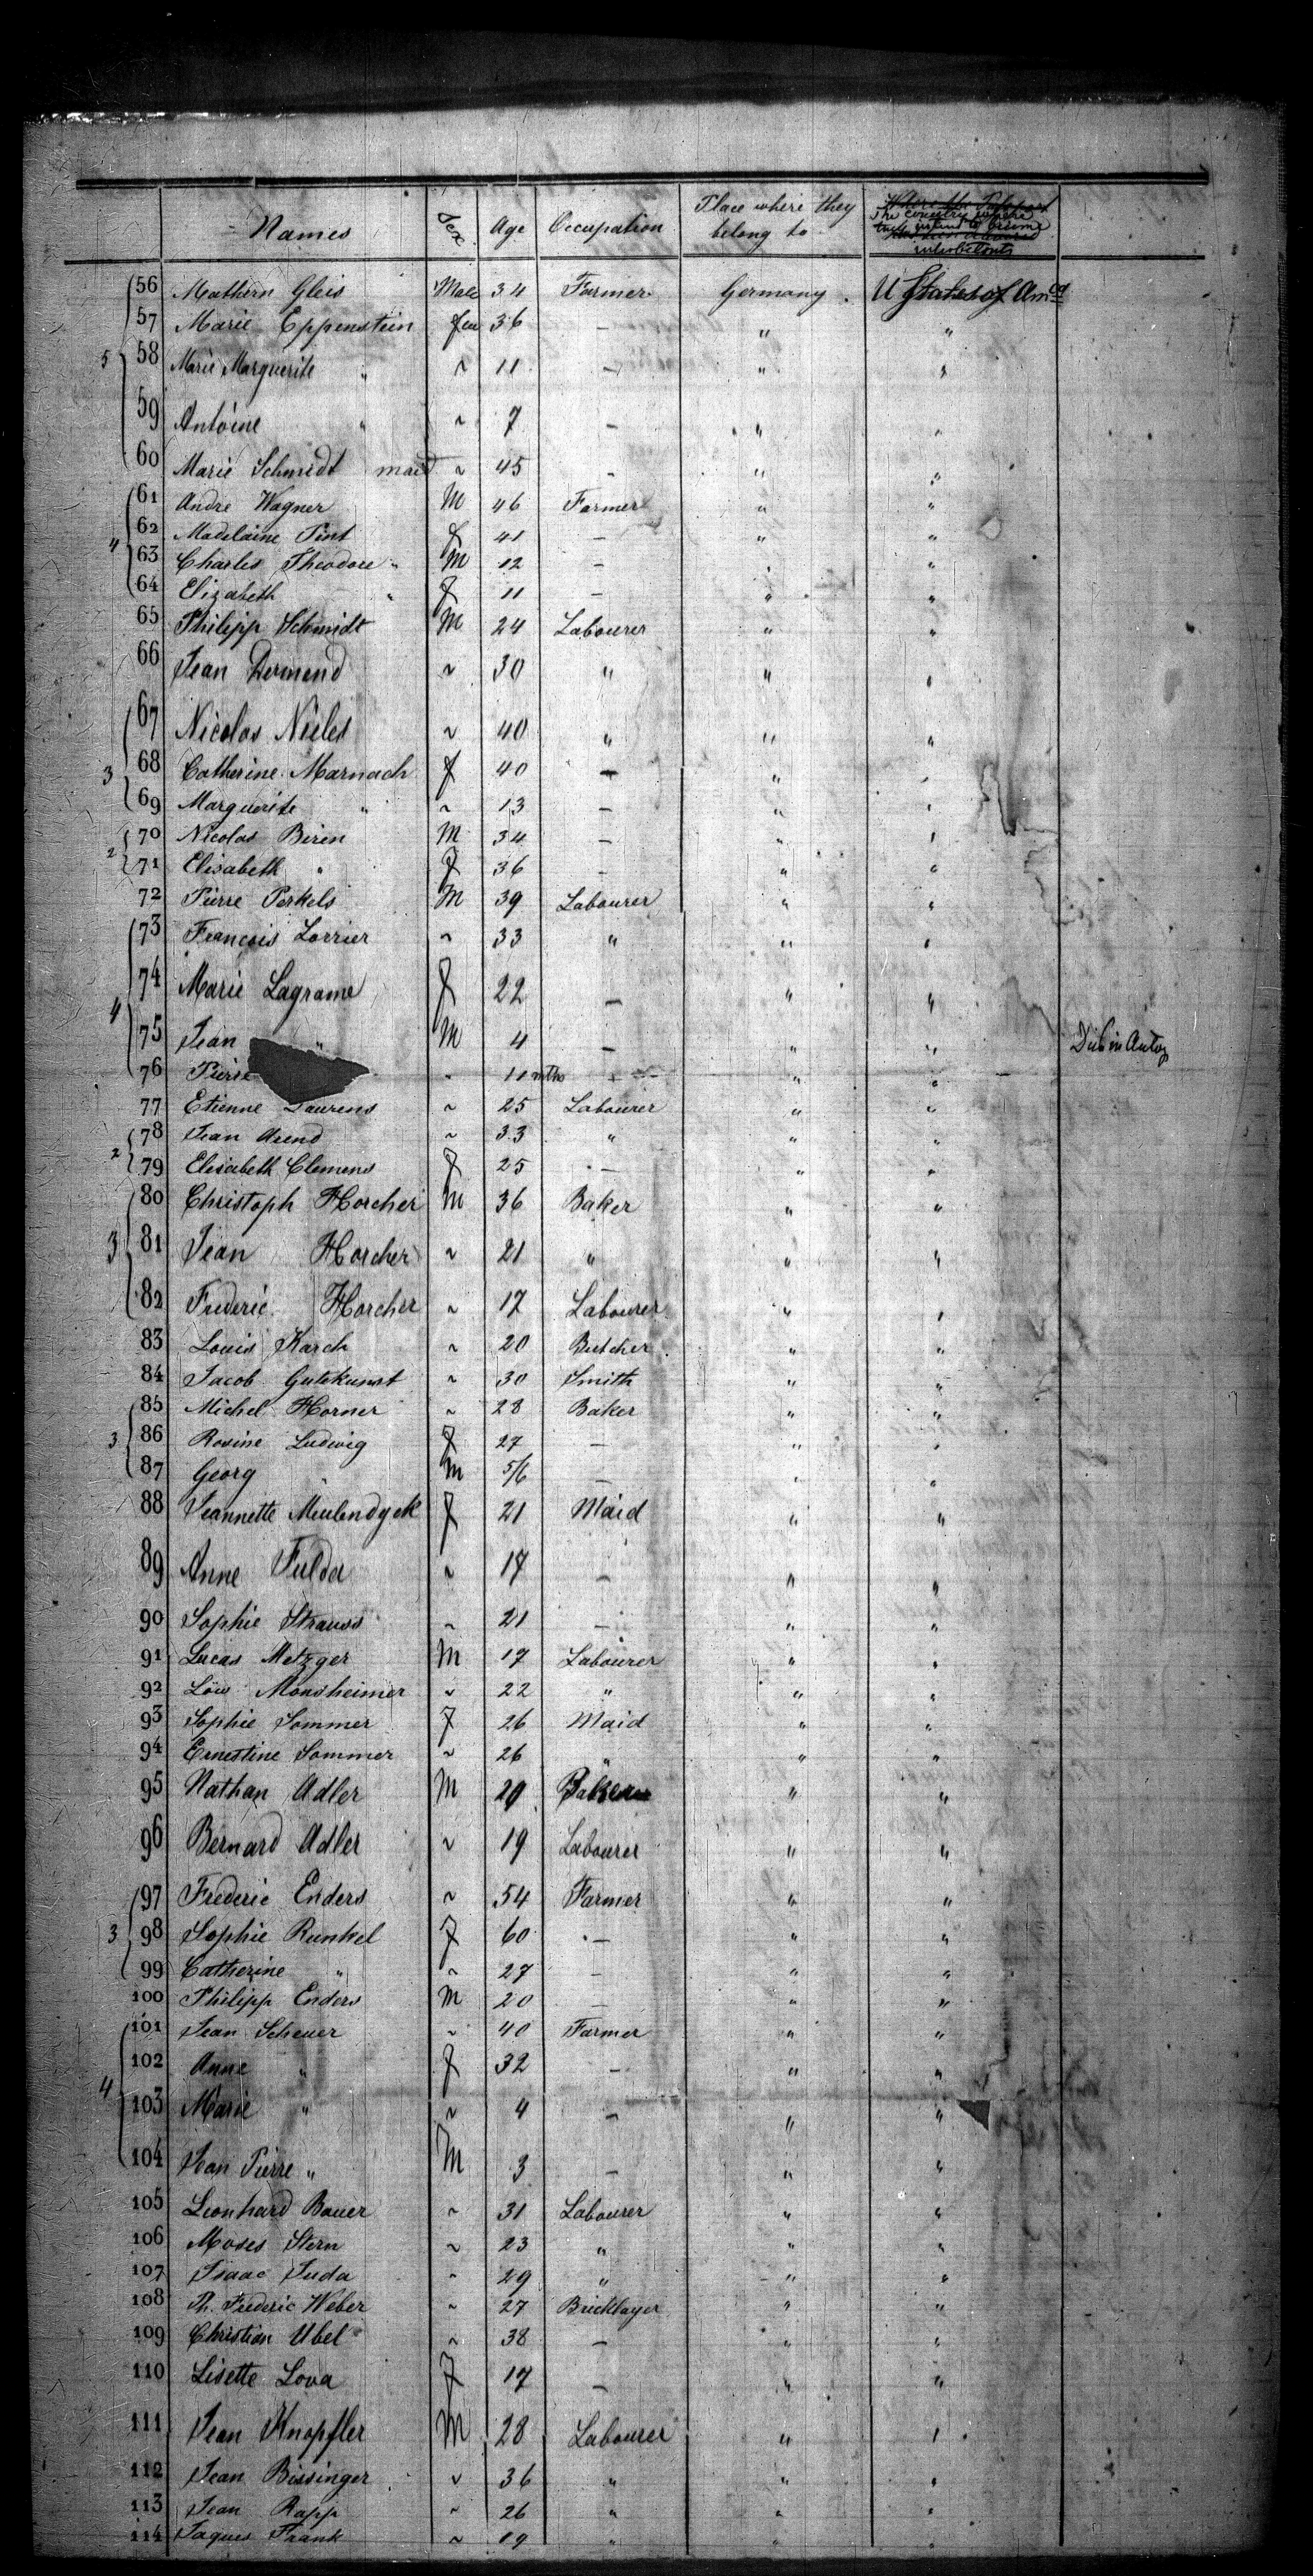 Names Sex Age Occupation Place where they belong to The country where they intend to become inhabitants
56 Mathern Gleis Male 34 Farmer Germany U States of Am ca
57 Marie Eppenstein fem 36 — " "
5 58 Marie Marguerite " ~ 11 — " "
59 Antoine " ~ 7 — " "
60 Marie Schmidt maid ~ 45 — " "
61 Andre Wagner M 46 Farmer " "
62 Madelaine Pint f 41 — " "
4 63 Charles Theodore " M 12 — " "
64 Elizabeth " f 11 — " "
65 Philipp Schmidt M 24 Labourer " "
66 Jean Dermend ~ 30 " " "
67 Nicolas Nieles ~ 40 " " "
3 68 Catherine Marnach f 40 — " "
69 Marguerite " ~ 13 — " "
70 Nicolas Biren M 34 — " "
2 71 Elisabeth " f 36 — " "
72 Pierre Perkels M 39 Labourer " "
73 Francois Lorrier ~ 33 " " "
74 Marie Lagrame f 22 — " "
4 75 Jean " M 4 — " "
76 Pierre ~ 11 mths — " "
77 Etienne Laurens ~ 25 Labourer " "
78 Jean Arend ~ 33 " " "
2 79 Elisabeth Clemens f 25 — " "
80 Christoph Horcher M 36 Baker " "
3 81 Jean Horcher ~ 21 " " "
82 Frederic Horcher ~ 17 Labourer " "
83 Louis Karch ~ 20 Butcher " "
84 Jacob Gutekunst ~ 30 Smith " "
85 Michel Horner ~ 28 Baker " "
3 86 Rosine Ludwig f 27 — " "
87 Georg " M 5/6 — " "
88 Jeannette Meulendyck f 21 Maid " "
89 Anne Fulda ~ 17 — " "
90 Sophie Strauss ~ 21 — " "
91 Lucas Metzger M 17 Labourer " "
92 Löw Monsheimer ~ 22 " " "
93 Sophie Sommer f 26 Maid " "
94 Ernestine Sommer ~ 26 " " "
95 Nathan Adler M 29 Baker " "
96 Bernard Adler ~ 19 Labourer " "
97 Frederic Enders ~ 54 Farmer " "
3 98 Sophie Runkel f 60 — " "
99 Catherine " ~ 27 — " "
100 Philipp Enders M 20 — " "
101 Jean Scheuer ~ 40 Farmer " "
102 Anne " f 32 — " "
4 103 Marie " ~ 4 — " "
104 Jean Pierre " M 3 — " "
105 Leonhard Bauer ~ 31 Labourer " "
106 Moses Stern ~ 23 " " "
107 Isaac Juda ~ 29 " " "
108 Ph. Frederic Weber ~ 27 Bricklayer " "
109 Christian Ubel ~ 38 — " "
110 Lisette Lova f 17 — " "
111 Jean Knopfler M 28 Labourer " "
112 Jean Bissinger ~ 36 " " "
113 Jean Rapp ~ 26 " " "
114 Jaques Frank ~ 19 " " "